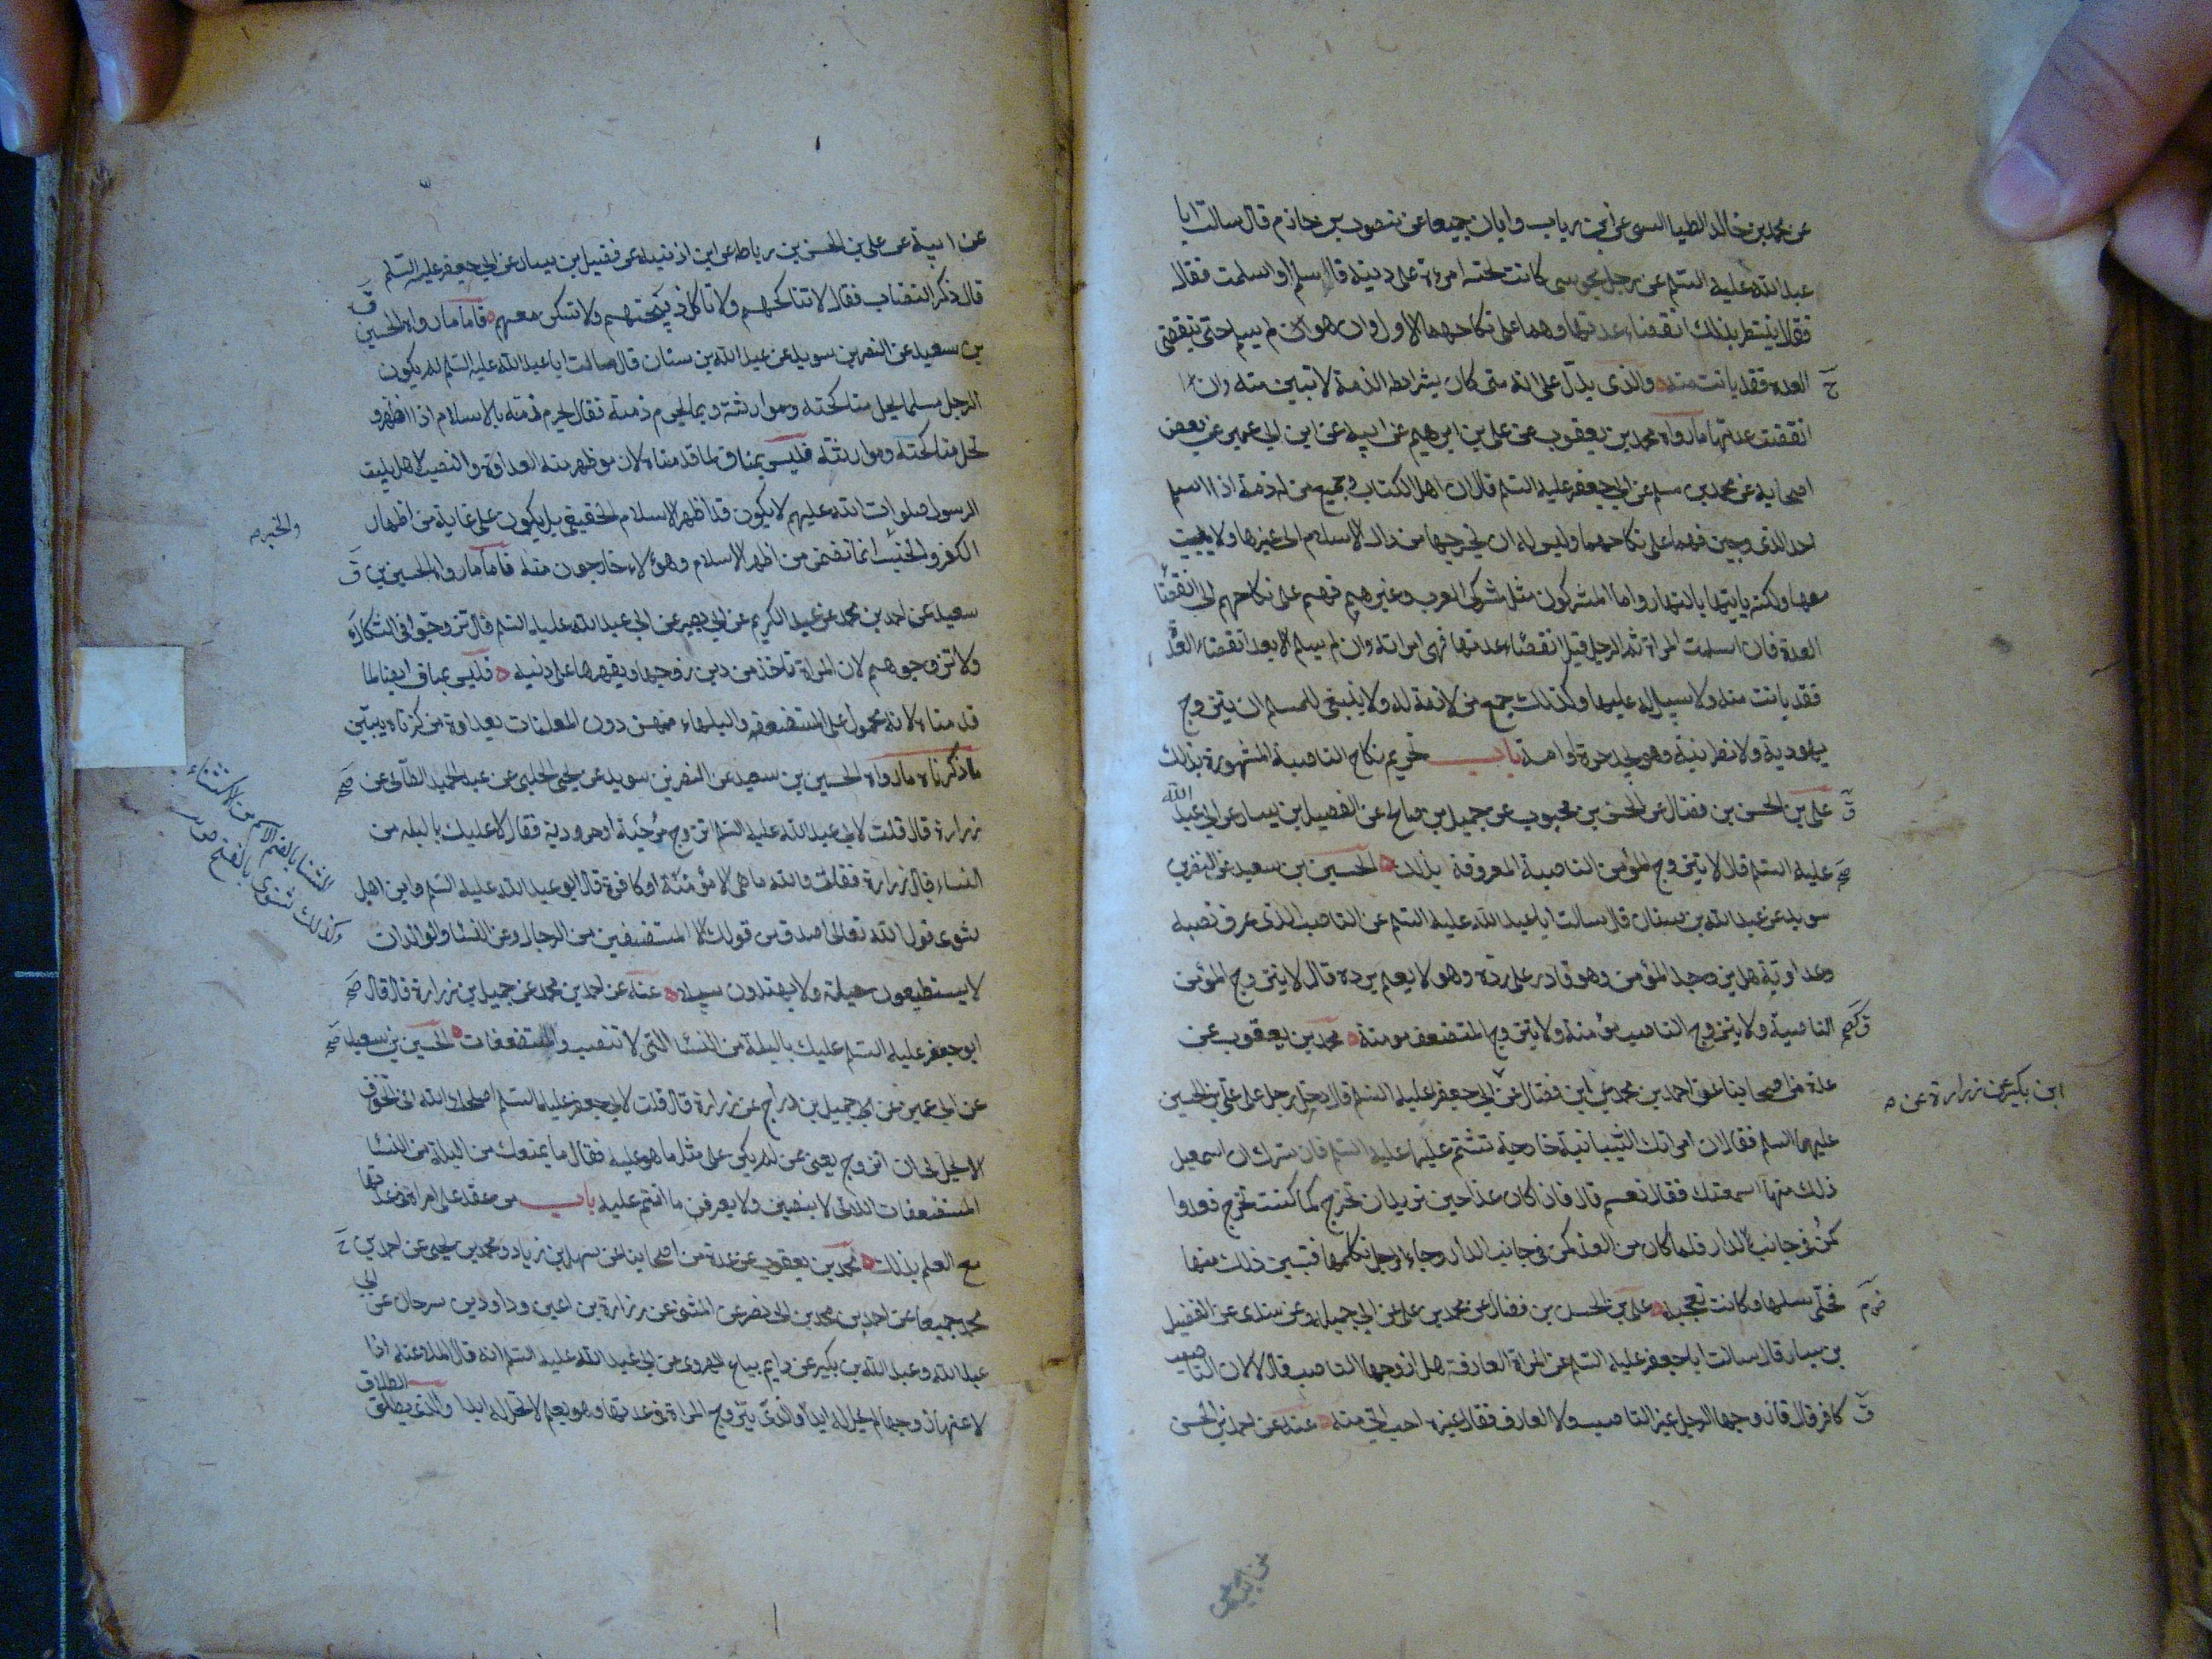 عن محمد بن خالد الطيالسي عن ابن رياب وابان جميعا عن منصور بن حازم قال سالت ابا
عبد الله عليه السلم عن رجل مجوسي كانت تحته امرءة على دينه قال اسلم او اسلمت فقال
فقال ينتظر بذلك انقضاء عدتها وهما على نكاحهما الاول وان هو لم يسلم حتى تنقضي
العدة فقد بانت منه والذى يدل على انه متى كان بشرايط الذمة لا تبين منه وان
انقضت عدتها ما رواه محمد بن يعقوب عن على بن ابرهيم عن ابيه عن ابن ابي عمير عن بعض
اصحابه عن محمد بن مسلم عن ابي جعفر عليه السلم قال ان اهل الكتاب وجميع من له ذمة اذا اسلم
احد الزوجين فهما على نكاحهما وليس له ان يخرجها من دار الاسلام الى غيرها ولا يبيت
معها ولكنه ياتيها بالنهار واما المشركون مثل مشركي العرب وغيرهم فهم على نكاحهم الى انقضاء
العدة فان اسلمت المراة ثم الرجل قبل انقضاء عدتها فهى امراته وان لم يسلم الا بعد انقضاء العدة
فقد بانت منه ولا سبيل له عليها وكذلك جميع من لا ذمة له ولا ينبغي للمسلم ان يتزوج
يهودية ولا نصرانية وهو يجد حرة او امة باب تحريم نكاح الناصبة المشهورة بذلك
على بن الحسن بن فضال عن الحسن بن محبوب عن جميل بن صالح عن الفضيل بن يسار عن ابي عبد الله
عليه السلم قال لا يتزوج المؤمن الناصبة المعروفة بذلك الحسين بن سعيد عن النضر بن
سويد عن عبد الله بن سنان قال سالت ابا عبد الله عليه السلم عن الناصب الذى عرف نصبه
وعداوته هل يزوجه المؤمن وهو قادر على رده وهو لا يعلم برده قال لا يتزوج المؤمن
الناصبة ولا يتزوج الناصب مؤمنة ولا يتزوج المستضعف مومنة محمد بن يعقوب عن
عدة من اصحابنا عن احمد بن محمد عن ابن فضال عن ابي جعفر عليه السلم قال دخل رجل على على بن الحسين
ابن بكير عن زرارة عن
عليهما السلم فقال ان امراتك الشيبانية خارجية تشتم عليا عليه السلم فان سرك ان اسمعك
ذلك منها اسمعتك فقال نعم قال فاذا كان غدا حين تريد ان تخرج كما كنت تخرج فعد وا
كمن في جانب الدار فلما كان من الغد كمن في جانب الدار وجاء الرجل فكلمها فتبين ذلك منها
فخلى سبيلها وكانت تعجبه على بن الحسن بن فضال عن محمد بن على عن ابي جميلة عن سندى عن الفضيل
بن يسار قال سالت ابا جعفر عليه السلم عن المراة العارفة هل ازوجها الناصب قال لا لان الناصب
كافر قال فازوجها الرجل غير الناصب ولا العارف فقال غيره احب الي منه عنه عن احمد بن الحسن
عن ابيه عن على بن الحسن بن رباط عن ابن اذينة عن فضيل بن يسار عن ابي جعفر عليه السلم
قال ذكر النصاب فقال لا تناكحهم ولا تاكل ذبيحتهم ولا تسكن معهم فاما ما رواه الحسين
بن سعيد عن النضر بن سويد عن عبد الله بن سنان قال سالت ابا عبد الله عليه السلم بم يكون
الرجل مسلما يحل مناكحته وموارثته وبما يحرم دمه فقال يحرم دمه بالاسلام اذا اظهر و
تحل مناكحته وموارثته فليس بمناف لما قدمناه لان من ظهر منه العداوة والنصب لاهل بيت
الرسول صلوات الله عليهم لا يكون قد اظهر الاسلام الحقيقي بل يكون على غاية من اظهار
والخبر
الكفر والخبر انما تضمن من اظهر الاسلام وهؤلاء خارجون منه فاما ما رواه الحسين بن
سعيد عن احمد بن محمد عن عبد الكريم عن ابي بصير عن ابي عبد الله عليه السلم قال تزوجوا في الشكاك
ولا تزوجوهم لان المراة تاخذ من دين زوجها ويقهرها على دينه فليس بمناف ايضا لما
قدمناه لانه محمول على المستضعفة والبلهاء منهن دون المعلنات بعداوة من ذكرناه يبين
ما ذكرناه ما رواه الحسين بن سعيد عن النضر بن سويد عن يحيى الحلبي عن عبد الحميد الطائى عن
زرارة قال قلت لابي عبد الله عليه السلم اتزوج مرجئة او حرورية فقال لا عليك بالبله من
النساء قال زرارة فقلت والله ما هى الا مؤمنة او كافرة قال ابو عبد الله عليه السلم واين اهل
ثنوى قول الله تعالى اصدق من قولك الا المستضعفين من الرجال وعن النساء والولدان
لا يستطيعون حيلة ولا يهتدون سبيلا عنه عن احمد بن محمد عن جميل بن زرارة قال قال
ابو جعفر عليه السلم عليك بالبلة من النسا التى لا تنصب والمستضعفات الحسين بن سعيد
عن ابي عمير عن جميل بن دراج عن زرارة قال قلت لابي جعفر عليه السلم اصلحك الله انى اخاف
لا يحل لى ان اتزوج يعنى من لم يكن على مثل ما هو عليه فقال ما يمنعك من البلة من النسا
المستضعفات اللاتى لا ينصبن ولا يعرفن ما انتم عليه باب من عقد على امراة في عدتها
مع العلم بذلك محمد بن يعقوب عن عدة من اصحابنا عن سهل بن زياد ومحمد بن يحيى عن احمد بن
محمد جميعا عن احمد بن محمد بن ابي نصر عن المثنى عن زرارة بن اعين وداود بن سرحان عن ابي
عبد الله وعبد الله بن بكير عن اديم بياع الهروى عن ابي عبد الله عليه السلم انه قال الملاعنة اذا
لاعنها زوجها لم تحل له ابدا والذى يتزوج المراة في عدتها وهو يعلم لا تحل له ابدا والذى يطلق الطلاق